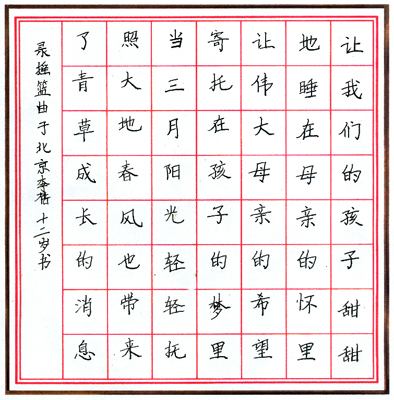 让我们的孩子甜甜
地睡在母亲的怀里
让伟大母亲的希望
寄托在孩子的梦里
当三月阳光轻轻抚
照大地春风也带来
了青草成长的消息
录摇篮曲于北京 十二岁书